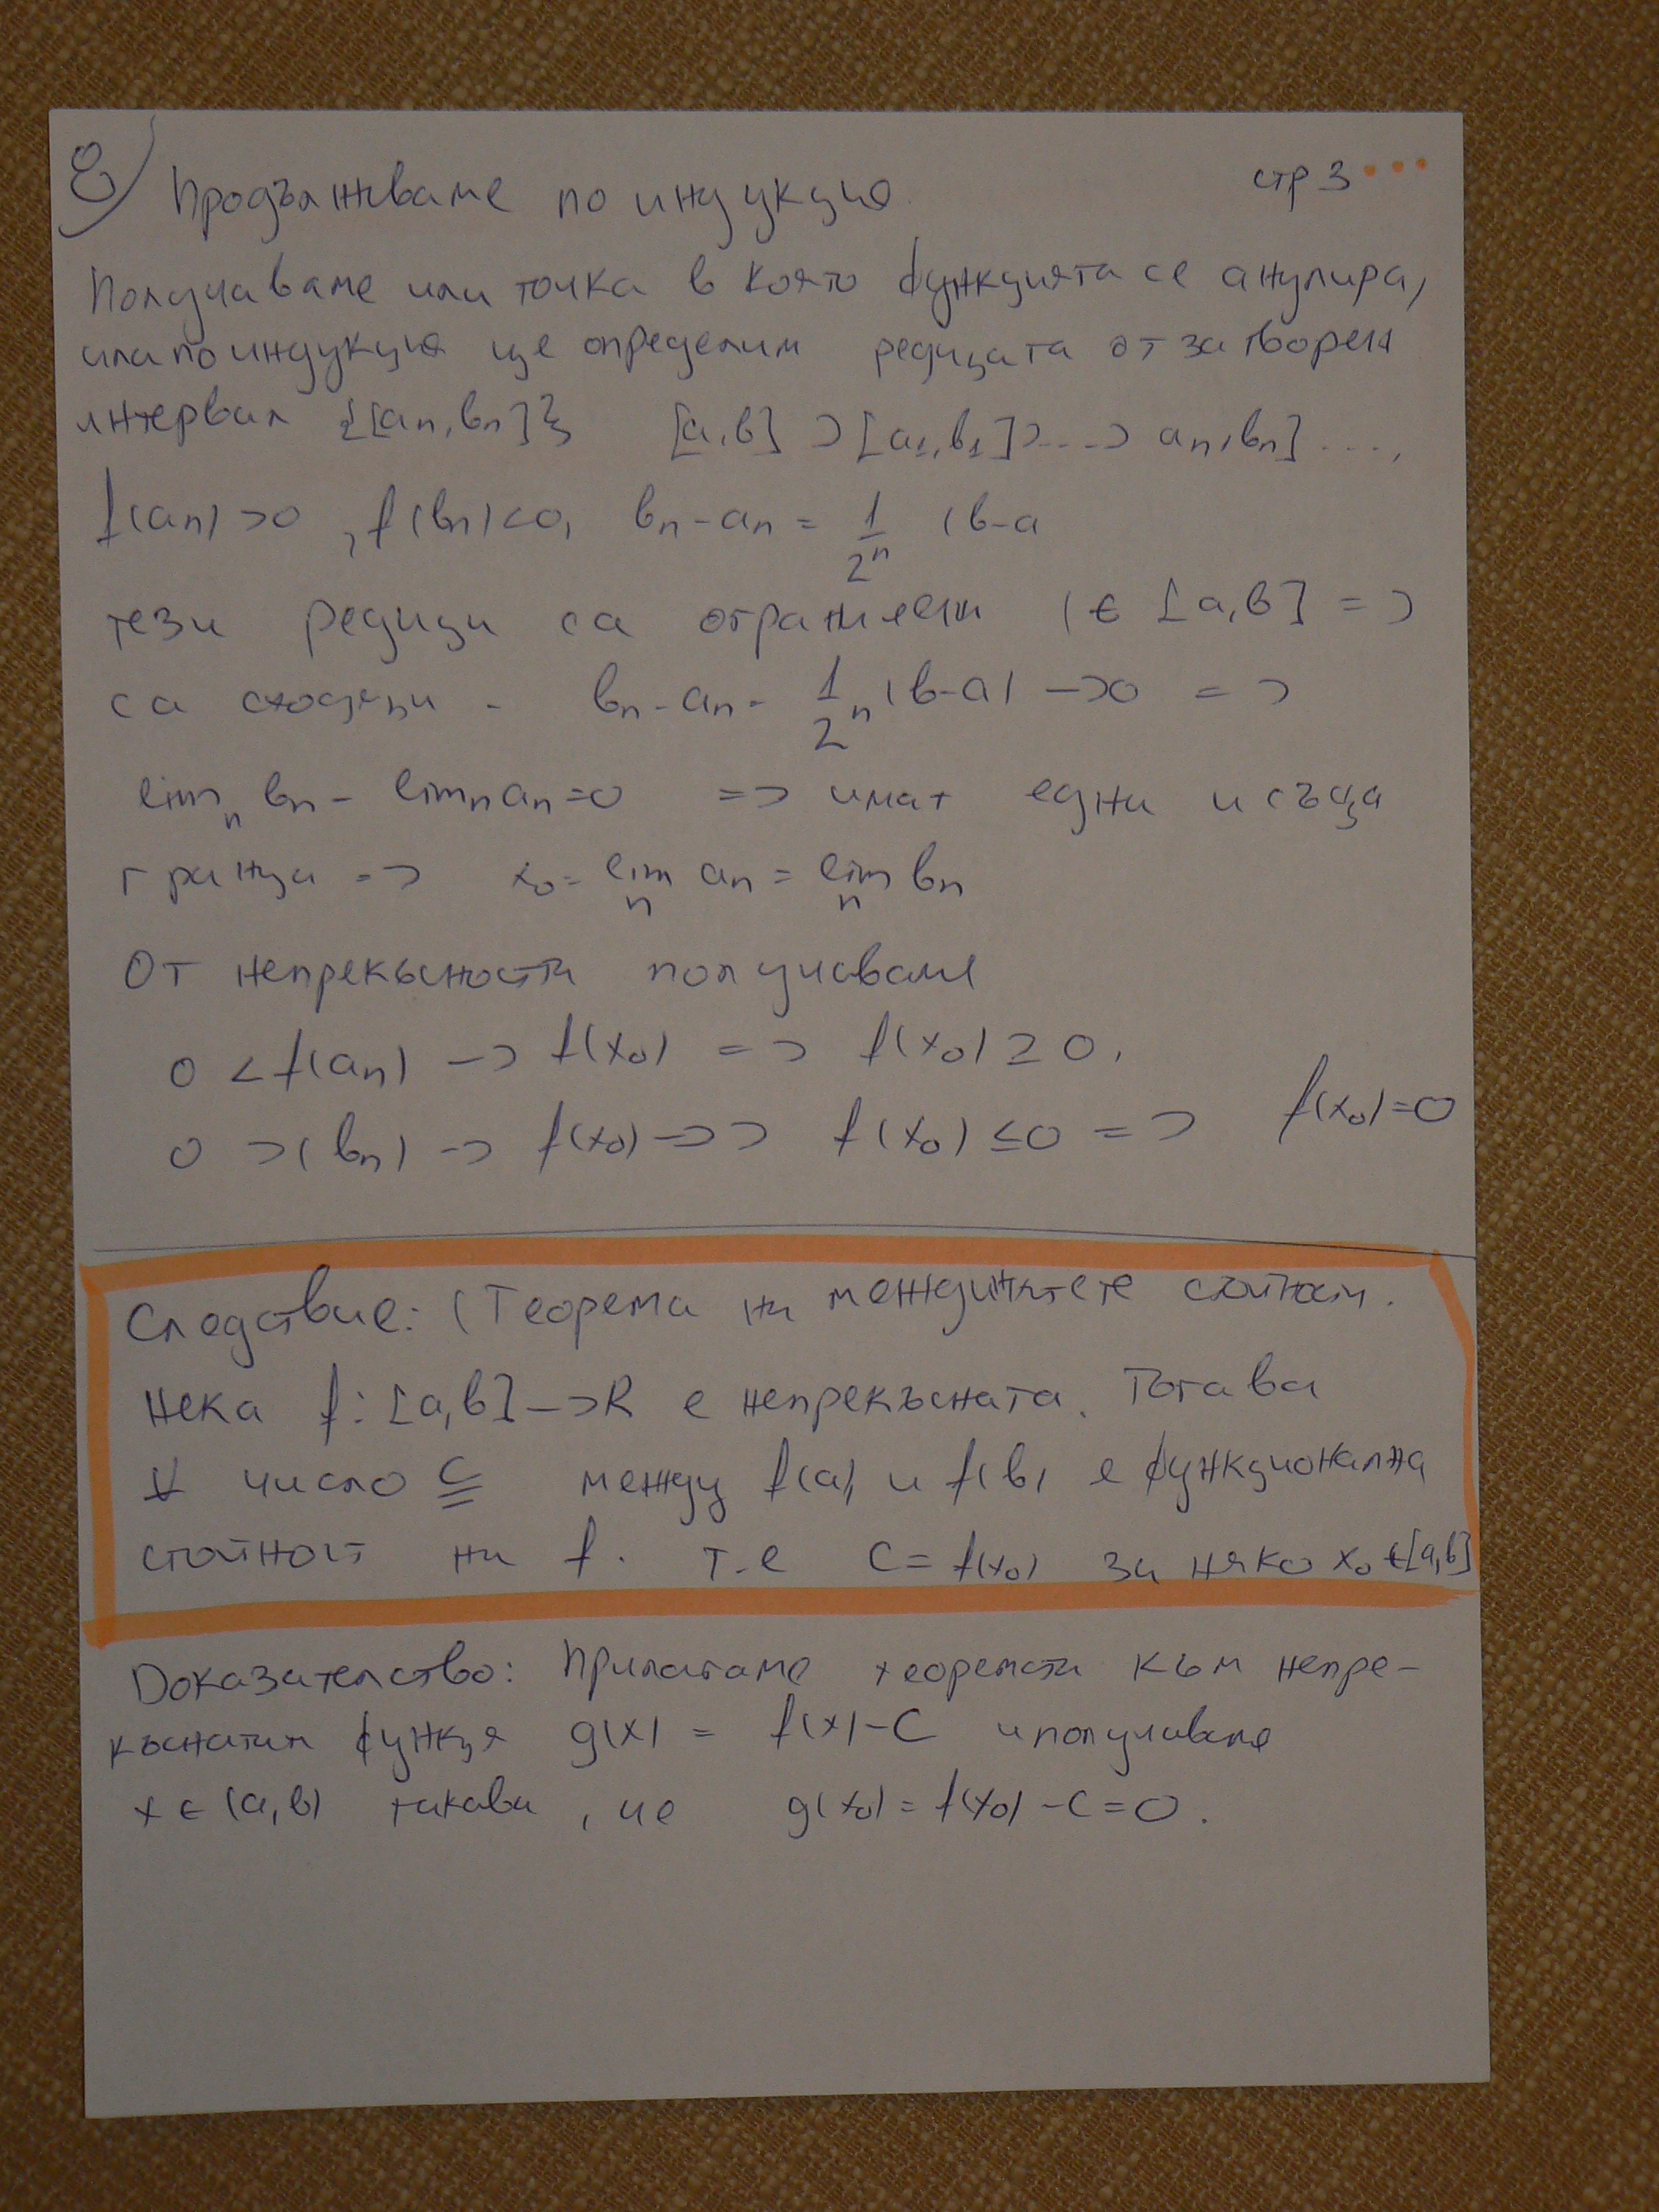 8) Продължаваме по индукция. стр 3...
Получаваме или точка в която функцията се анулира,
или по индукция ще определим редицата от затворен
интервал {[an, bn]} [a,b] ⊃ [a1, b1] ⊃ ... ⊃ an, bn] ...,
f(an) > 0, f(bn) < 0, bn - an = 1/2^n (b-a
тези редици са ограничени (∈ [a,b] =>
са сходящи - bn - an = 1/2^n (b-a) -> 0 =>
lim_n bn - lim_n an = 0 => имат едни и съща
граница => x0 = lim_n an = lim_n bn
От непрекъсности получаваме
0 < f(an) -> f(x0) => f(x0) ≥ 0,
0 > (bn) -> f(x0) => f(x0) ≤ 0 => f(x0) = 0
Следствие: (Теорема на междинтете стойност.
Нека f: [a,b] -> R е непрекъсната. Тогава
∀ число C между f(a) и f(b) е функционална
стойност на f. т.е C = f(x0) за няко x0 ∈ [a,b]
Доказателство: Прилагаме теоремата към непре-
къснатата функця g(x) = f(x) - C и получаваме
x ∈ (a,b) такава, че g(x0) = f(x0) - C = 0.